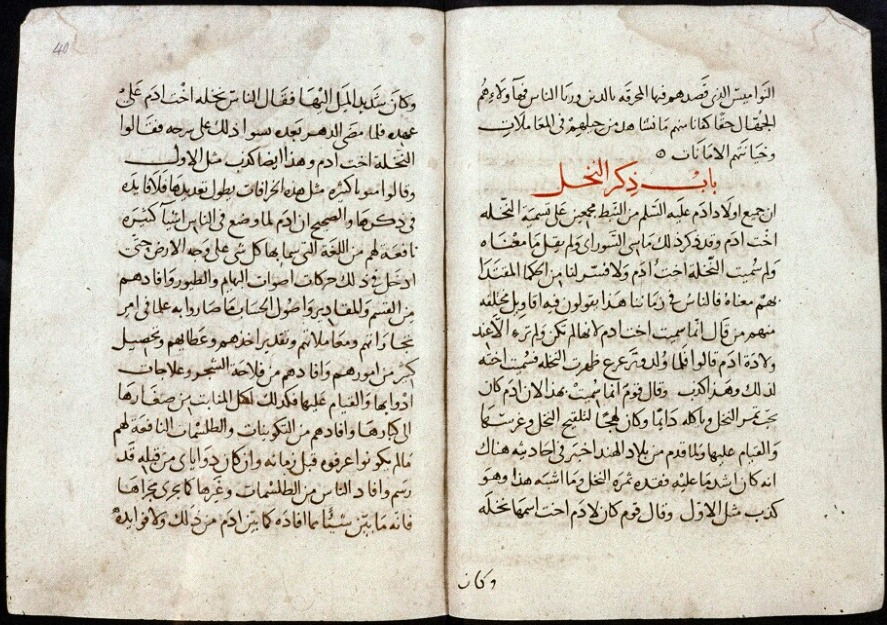 النواميس الذي قصدهم فيها المخرقه بالدين وربا الناس فيها ولاءهم
الجهال حقا كفانا منهم ما نشاهد من حيلهم في المعاملات
وخيانتهم الامانات ه
باب ذكر النخل
ان جميع اولاد ادم عليه السلم من النبط مجمعين على تسمية النخله
اخت ادم وقد ذكر ذلك ماسى السوراى ولم يقل ما معناه
ولم سميت النخلة اخت ادم ولا فسر لنا من الحكما المقتدا
بهم معناه فالناس في زماننا هذا يقولون فيه اقاويل مختلفه
منهم من قال انما سميت اخت ادم لانها لم تكن ولم تر الا عند
ولادة ادم قالوا فلما ولد وترعرع ظهرت النخله فسميت اخته
لذلك وهذا كذب وقال قوم انما سميت بهذا لان ادم كان
يحب تمر النخل وياكله دايما وكان لهجا لتلقيح النخل وغرسها
والقيام عليها ولما قدم من بلاد الهند اخبر في احاديثه هناك
انه كان اشد ما عليه فقده ثمره النخل وما اشبه هذا وهو
كذب مثل الاول وقال قوم كان لادم اخت اسمها نخله
وكان
40
وكان شديد الميل اليها فقال الناس نخله اخت ادم على
عهده فلما مضى الدهر بعده نسوا ذلك على شرحه فقالوا
النخلة اخت ادم وهذا ايضا كذب مثل الاول
وقالوا امورا كثيره مثل هذه الخرافات يطول تعديدها فلا فايده
في ذكرها والصحيح ان ادم لما وضع في الناس اشيآ كثيره
نافعة لهم من اللغة التي سما بها كل شي على وجه الارض حتى
ادخل في ذلك حركات اصوات البهايم والطيور وافادهم
من القسم والمقادير واصول الحساب ما صاروا به علما في امر
تجاراتهم ومعاملاتهم وتقدير اخذهم وعطايهم وتحصيل
كثير من امورهم وافادهم من فلاحة الشجر وعلاجات
ادوايها والقيام عليها فكذلك لكل المنابت من صغارها
الى كبارها وافادهم من التكوينات والطلسمات النافعة لهم
مالم يكونوا عرفوه قبل زمانه وان كان دواياى من قبله قد
رسم وافاد الناس من الطلسمات وغرها كما يجرى مجراها
فانه ما بين شيئا مما افاده كما بين ادم من ذلك ولا فوايده